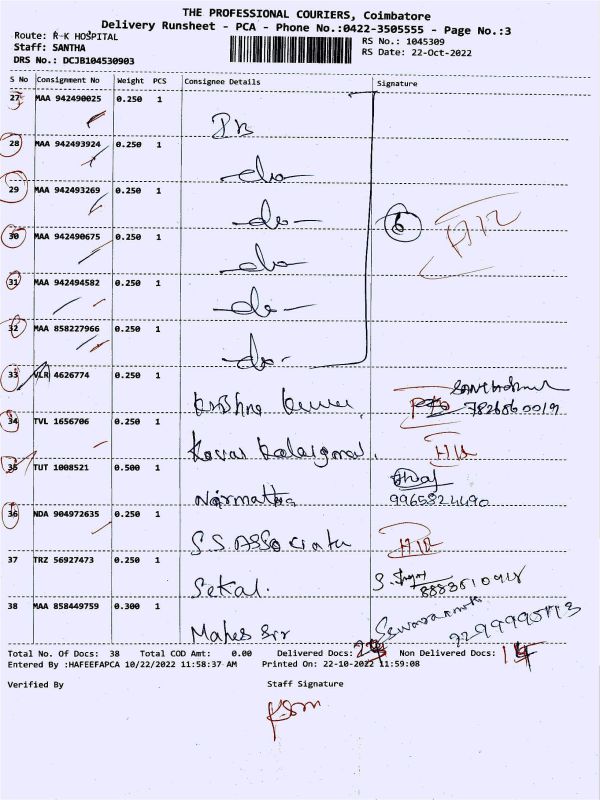 THE PROFESSIONAL COURIERS, Coimbatore
Delivery Runsheet - PCA - Phone No.:0422-3505555 - Page No.:3
Route: R-K HOSPITAL
RS No.: 1045309
Staff: SANTHA
RS Date: 22-Oct-2022
DRS No.: DCJB104530903
S No Consignment No Weight PCS Consignee Details Signature
27 MAA 942490025 0.250 1
28 MAA 942493924 0.250 1 -do-
29 MAA 942493269 0.250 1 -do-
30 MAA 942490675 0.250 1 -do-
6
31 MAA 942494582 0.250 1 -do-
32 MAA 858227966 0.250 1 -do-
33 VLR 4626774 0.250 1 Krishna Kumar
34 TVL 1656706 0.250 1 Kovai Kalaignal.
35 TUT 1008521 0.500 1 Nairmatha
36 NDA 904972635 0.250 1 S.S. Associata
37 TRZ 56927473 0.250 1 Sekal.
38 MAA 858449759 0.300 1 Mahes Sir
Total No. Of Docs: 38 Total COD Amt: 0.00 Delivered Docs: Non Delivered Docs:
Entered By :HAFEEFAPCA 10/22/2022 11:58:37 AM Printed On: 22-10-2022 11:59:08
Verified By Staff Signature